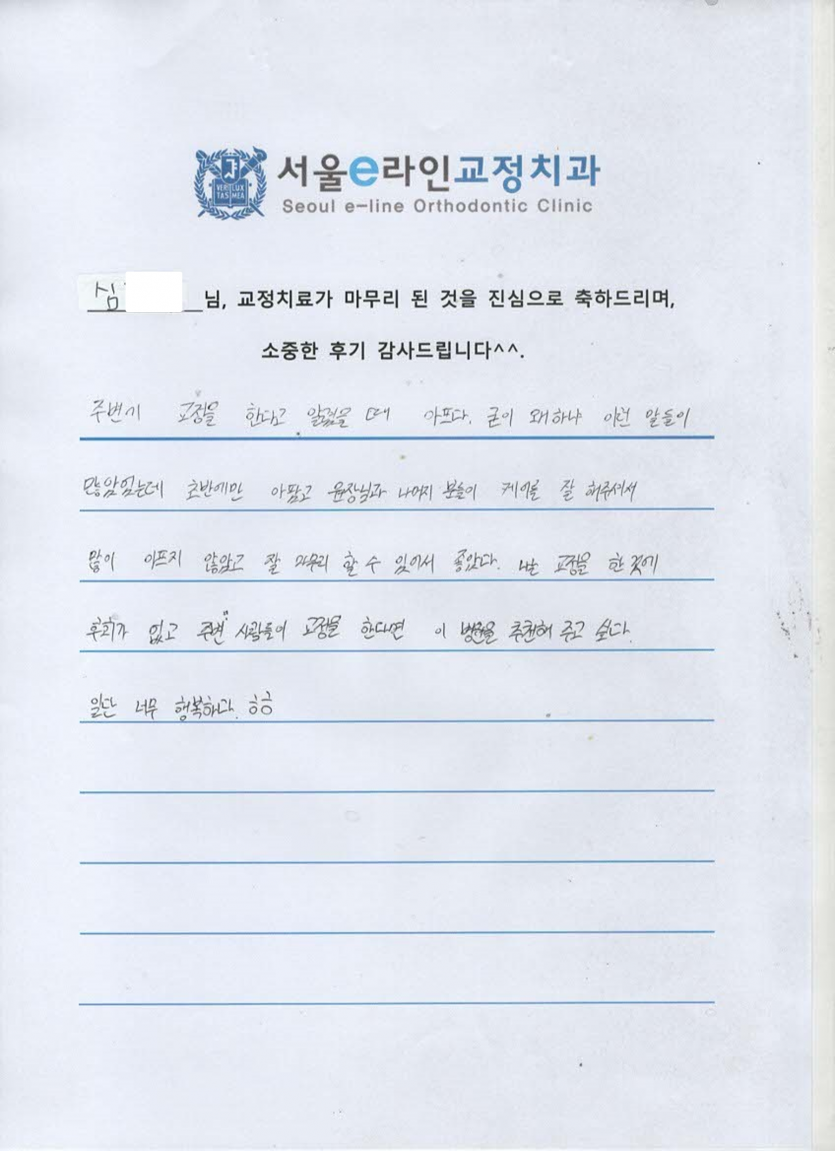 서울e라인교정치과
VERI LUX
TAS MEA
Seoul e-line Orthodontic Clinic
심 님, 교정치료가 마무리 된 것을 진심으로 축하드리며,
소중한 후기 감사드립니다^^.
주변에 교정을 한다고 알렸을 때 아프다. 굳이 왜하냐 이런 말들이
많았었는데 초반에만 아팠고 원장님과 나머지 분들이 케어를 잘 해주셔서
많이 아프지 않았고 잘 마무리 할 수 있어서 좋았다. 난 교정을 한 것에
후회가 없고 주변 사람들이 교정을 한다면 이 병원을 추천해 주고 싶다.
일단 너무 행복하다. ㅎㅎ